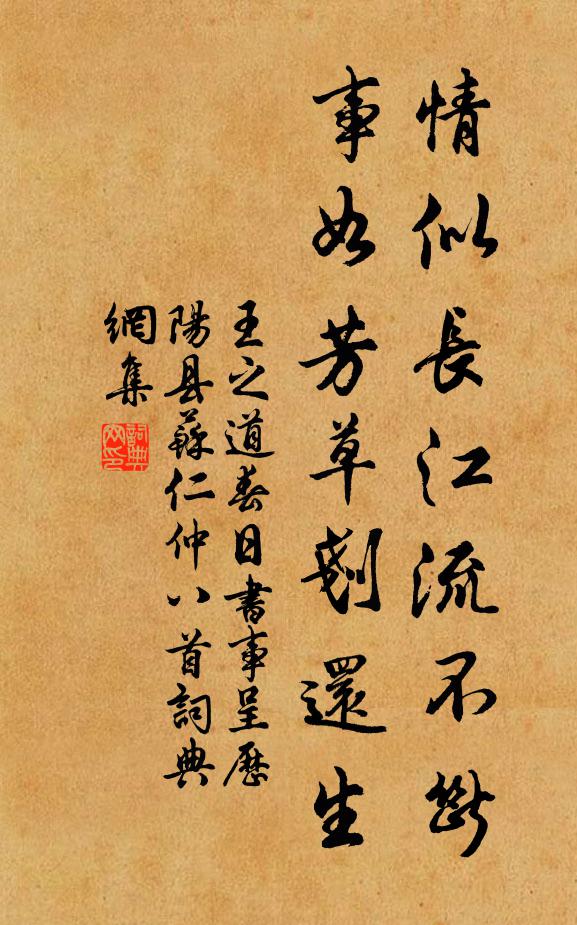 情似長江流不斷
事如芳草剗還生
王之道春日書事呈歷
陽县蘇仁仲八首詞典
網集
詞典
网印